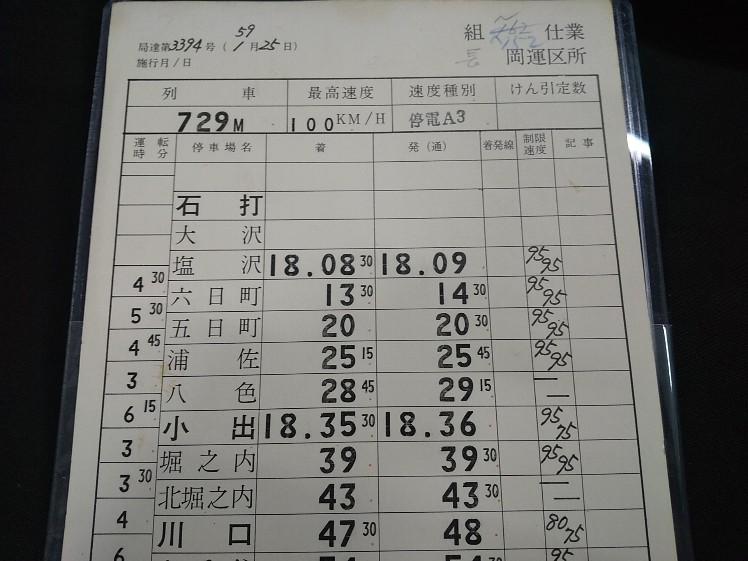 組 仕業
局達第3394号（59 1月25日）
長岡運区所
施行月/日
列 車 最高速度 速度種別 けん引定数
729M 100KM/H 停電A3
運転時分 停車場名 着 発（通） 着発線 制限速度 記事
石打
大沢
塩沢 18.08 30 18.09 95 95
4 30
六日町 13 30 14 30 95 95
5 30
五日町 20 20 30 95 95
4 45
浦佐 25 15 25 45 95 95
3
八色 28 45 29 15 — —
6 15
小出 18.35 30 18.36 95 75
3
堀之内 39 39 30 95 95
3 30
北堀之内 43 43 30 — —
4
川口 47 30 48 80 75
6
95